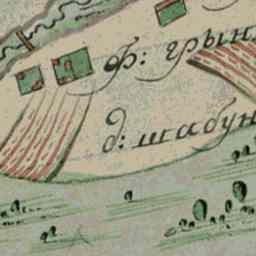 ф: грын
д: шабун